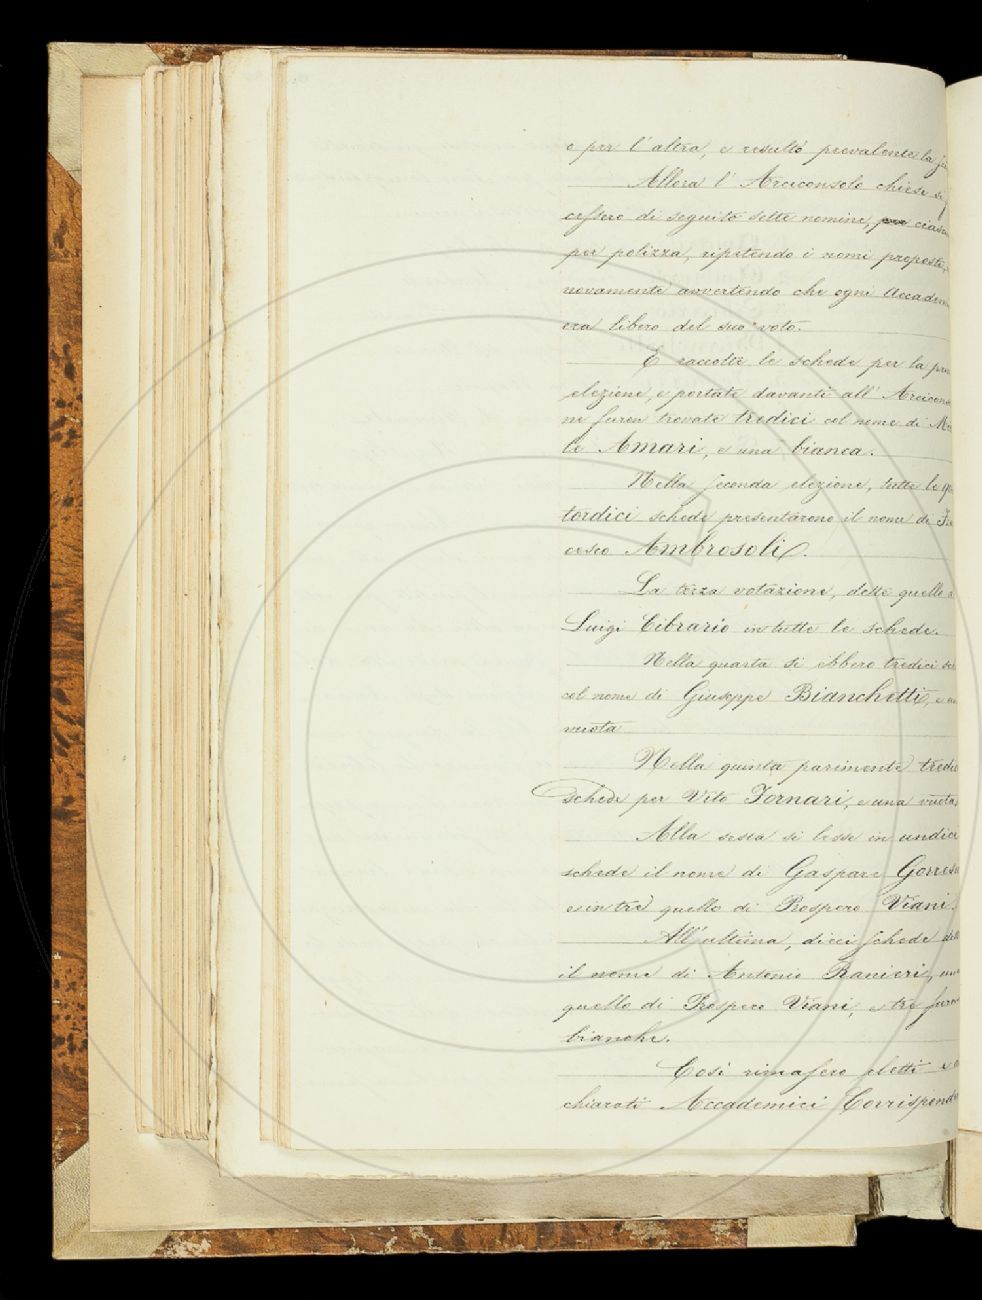 o per l'altra, e resultò prevalente la
Allora l'Arciconsolo chiese si
cessero di seguito sette nomine, per ciasc
per polizza, ripetendo i nomi proposti,
novamente avvertendo che ogni Accadem
era libero del suo voto.
E raccolte le schede per la pri
elezione, e portate davanti all'Arcicons
ne furon trovate tredici col nome di Mi
le Amari, e una bianca.
Nella seconda elezione, tutte le qu
tordici schede presentarono il nome di Fr
cesco Ambrosoli.
La terza votazione, dette quello
Luigi Cibrario in tutte le schede.
Nella quarta si ebbero tredici sc
col nome di Giuseppe Bianchetti, e un
vuota
Nella quinta parimente tredi
schede per Vito Fornari, e una vuota
Alla sesta si lesse in undici
schede il nome di Gaspare Gorres
e in tre quello di Prospero Viani.
All'ultima, dieci schede
il nome di Antonio Ranieri, una
quello di Prospero Viani, e tre furon
bianche.
Così rimasero eletti e
chiarati Accademici Corrispond